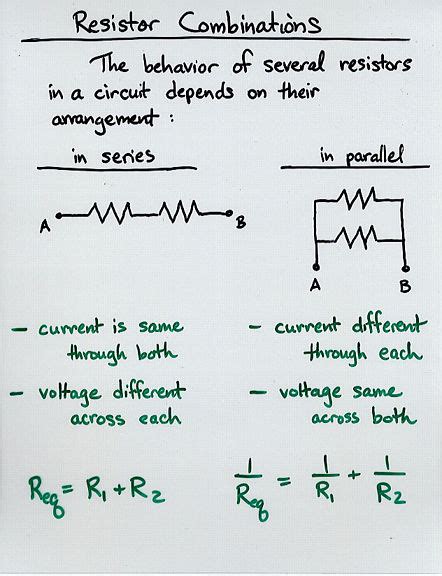 Resistor Combinations
The behavior of several resistors
in a circuit depends on their
arrangement :
in series
A
B
- current is same
through both
- voltage different
across each
Req = R1 + R2
in parallel
A
B
- current different
through each
- voltage same
across both
1/Req = 1/R1 + 1/R2